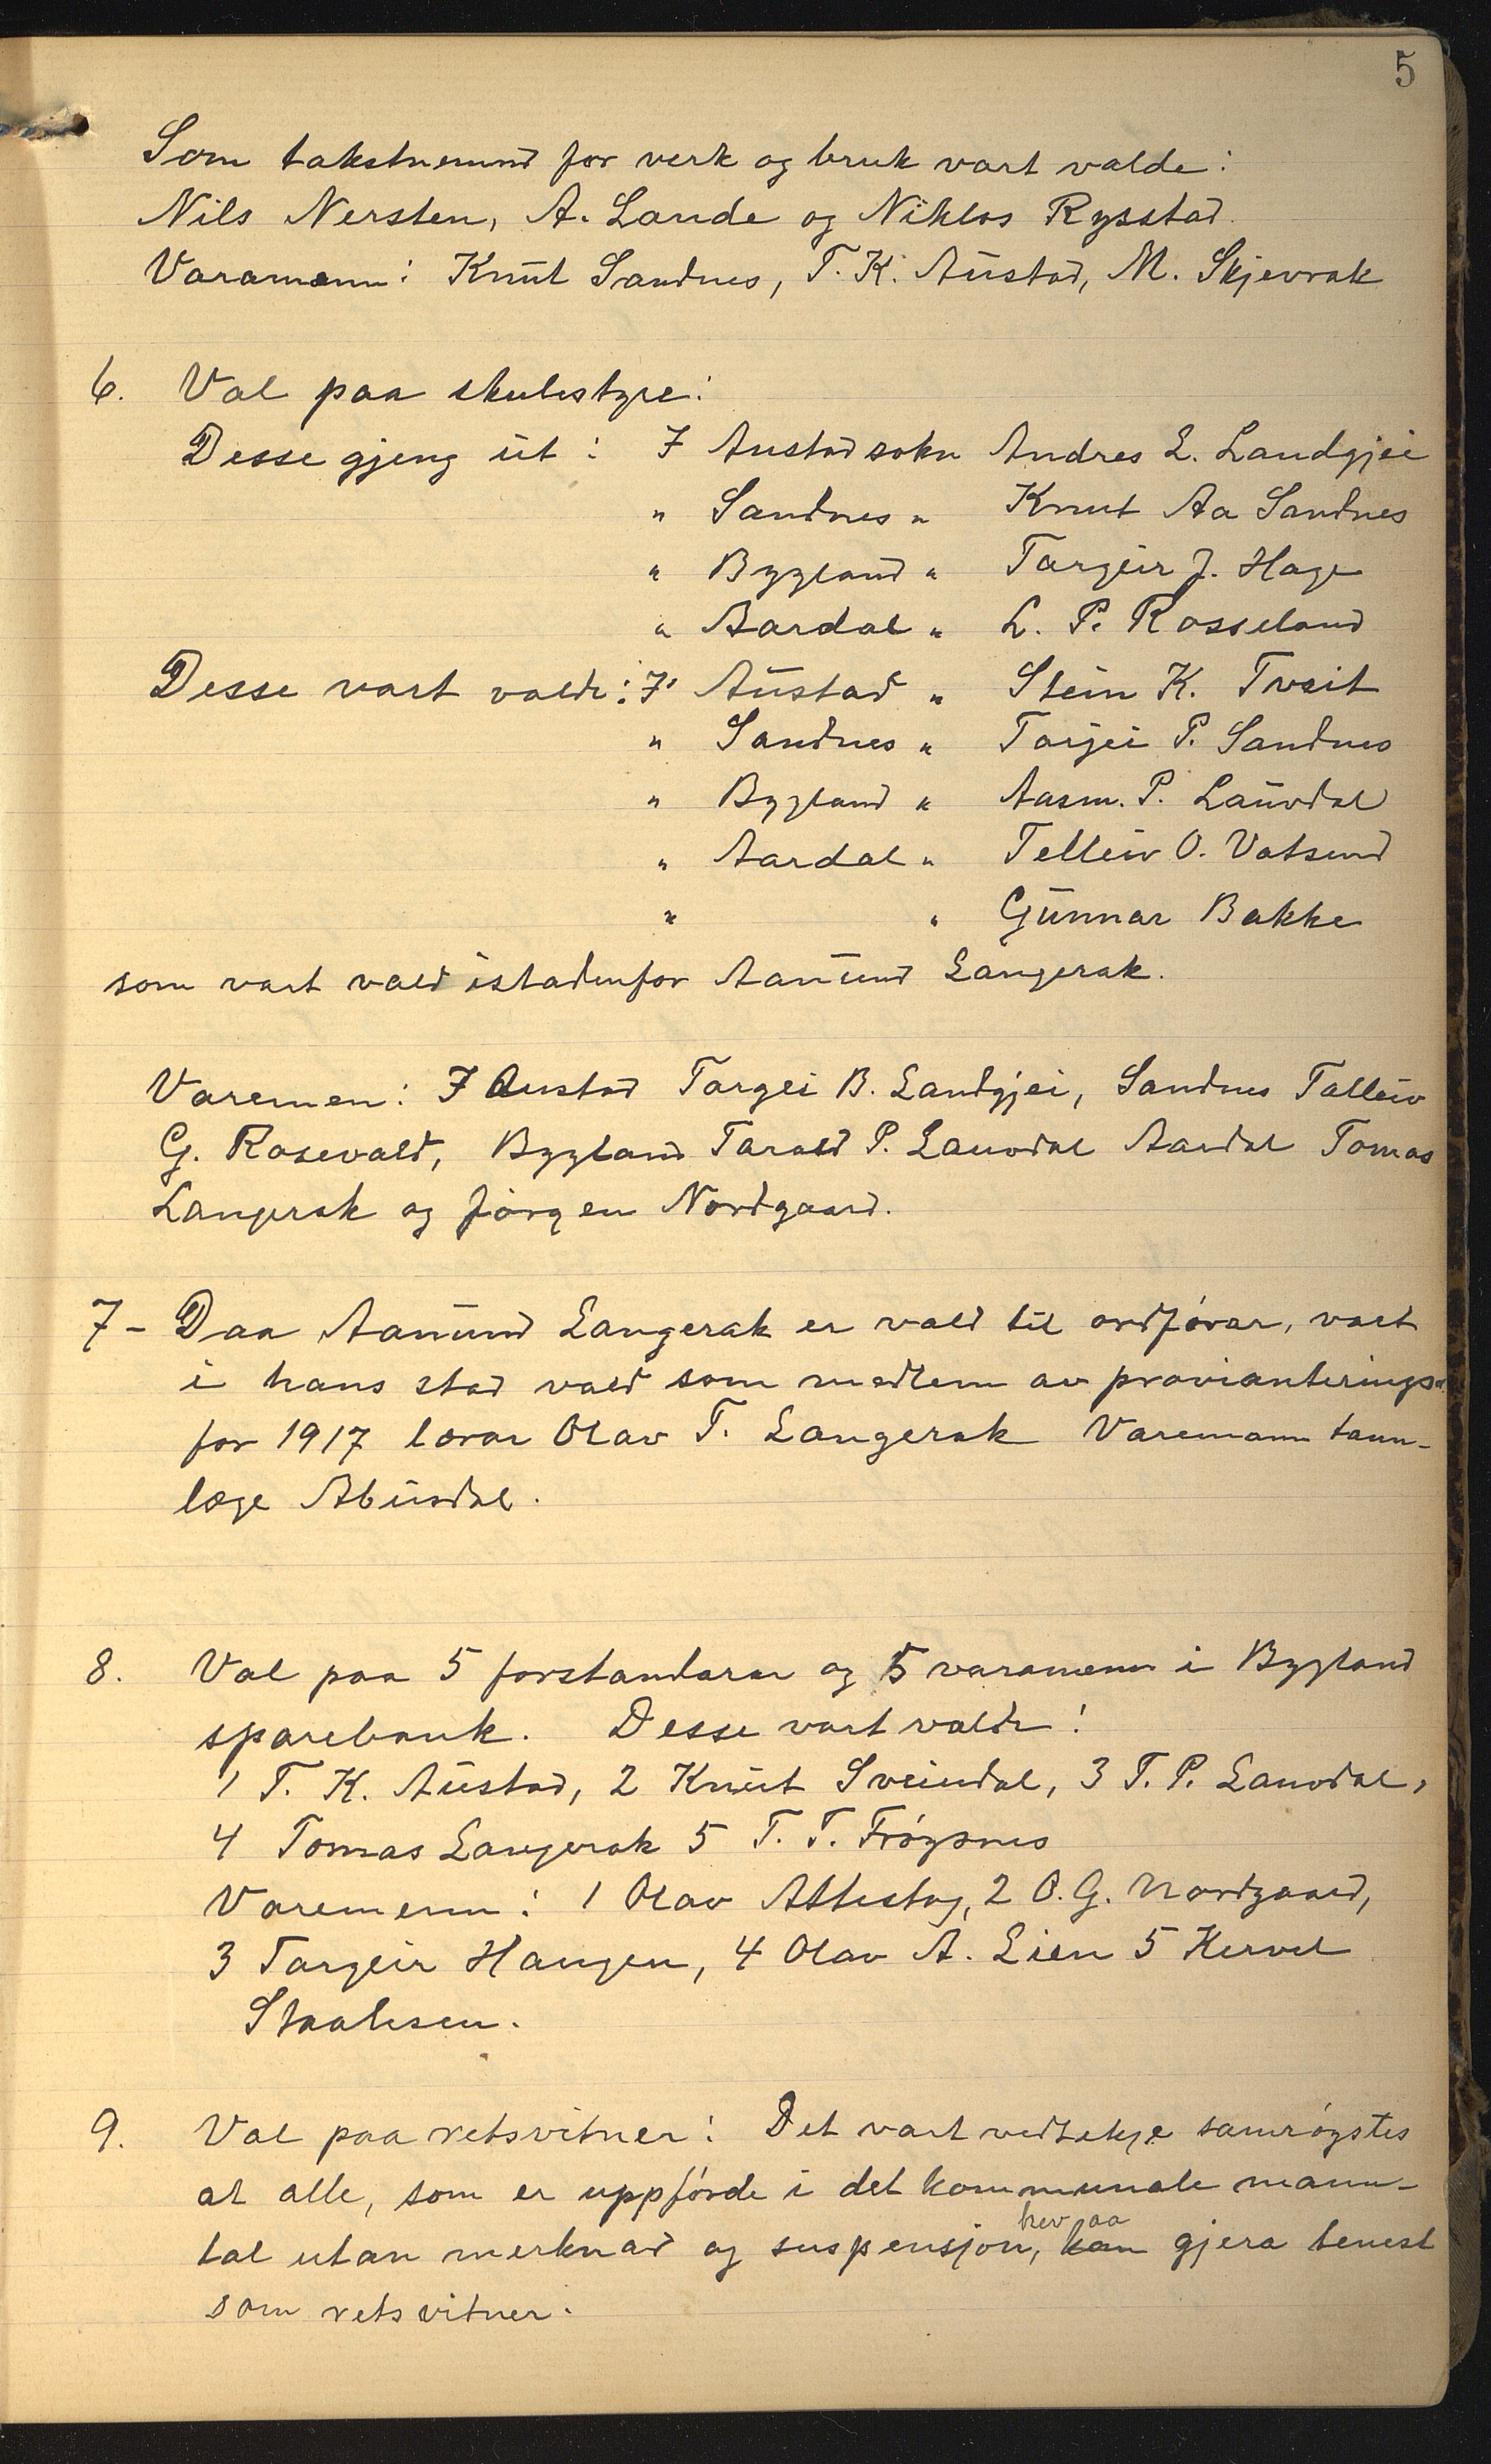 5
Som takstnemnd for verk og bruk vart valde:
Nils Nersten, A. Lande og Niklos Rysstad.
Varamenn: Knut Sandnes, T. K. Austad, M. Skjevrak
6. Val paa skulestyre:
Desse gjeng ut: I Austad sokn Andres L. Landgjei
" Sandnes " Knut Aa Sandnes
" Bygland " Targeir J. Hage
" Aardal " L. P. Rosseland
Desse vart valde: I Austad " Stein K. Tveit
" Sandnes " Tarjei P. Sandnes
" Bygland " Aasm. P. Lauvdal
" Aardal " Telleiv O. Vatsend
" " Gunnar Bakke
som vart vald istadenfor Aanund Langerak.
Varemen: I Austad Targei B. Landgjei, Sandnes Talleiv
G. Rosevald, Bygland Tarald P. Lauvdal Aardal Tomas
Langerak og Jørgen Nordgaard.
7- Daa Aanund Langerak er vald til ordførar, vart
i hans stad vald som medlem av provianterings-
for 1917 lærar Olav T. Langerak Varemann tann-
læge Abusdal.
8. Val paa 5 forstandarar og 5 varamenn i Bygland
sparebank. Desse vart valde:
1 T. K. Austad, 2 Knut Sveindal, 3 T. P. Lauvdal,
4 Tomas Langerak 5 T. T. Frøysnes
Varemenn: 1 Olav Attestog, 2 O. G. Nordgaard,
3 Targeir Haugen, 4 Olav A. Lien 5 Kervel
Staalesen.
9. Val paa retsvitner: Det vart vedtekje samrøystes
at alle, som er uppførde i det kommunale mann-
tal utan merknad og suspensjon, kan gjera tenest
som retsvitner.